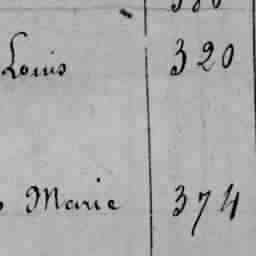 Louis 320
Marie 374